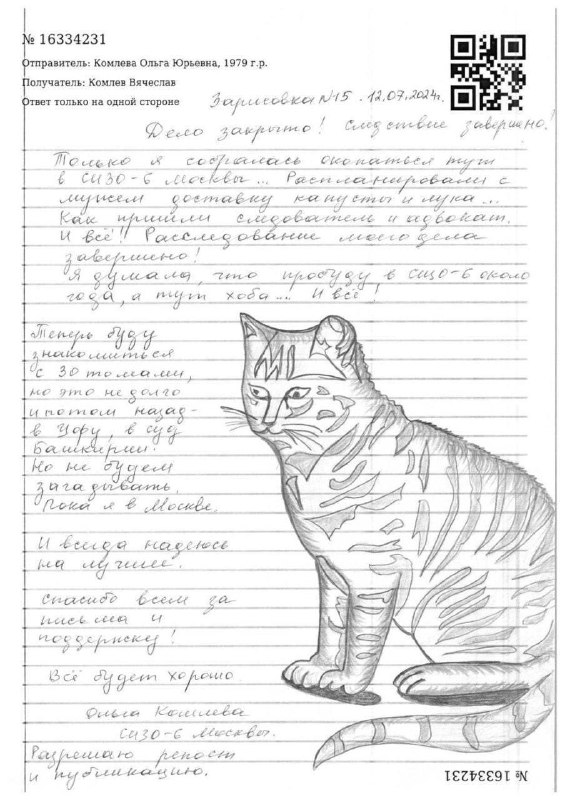 № 16334231
Отправитель: Комлева Ольга Юрьевна, 1979 г.р.
Получатель: Комлев Вячеслав
Ответ только на одной стороне
Зарисовка №15. 12.07.2024г.
Дело закрыто! Следствие завершено!
Только я собралась окопаться тут
в СИЗО-6 Москвы... Распланировали с
мужем доставку капусты и лука...
Как пришли следователь и адвокат.
И всё!! Расследование моего дела
завершено!
Я думала, что просуду в СИЗО-6 около
года, а тут хоба... И всё!
Теперь буду
знакомиться
с 30 томами,
но это не долго
и потом назад -
в Уфу, в суд
Башкирии.
Но не будем
загадывать.
Пока я в Москве.
И всегда надеюсь
на лучшее.
Спасибо всем за
письма и
поддержку!
Всё будет хорошо.
Ольга Комлева
СИЗО-6 Москвы.
Разрешаю репост
и публикацию.
№ 16334231